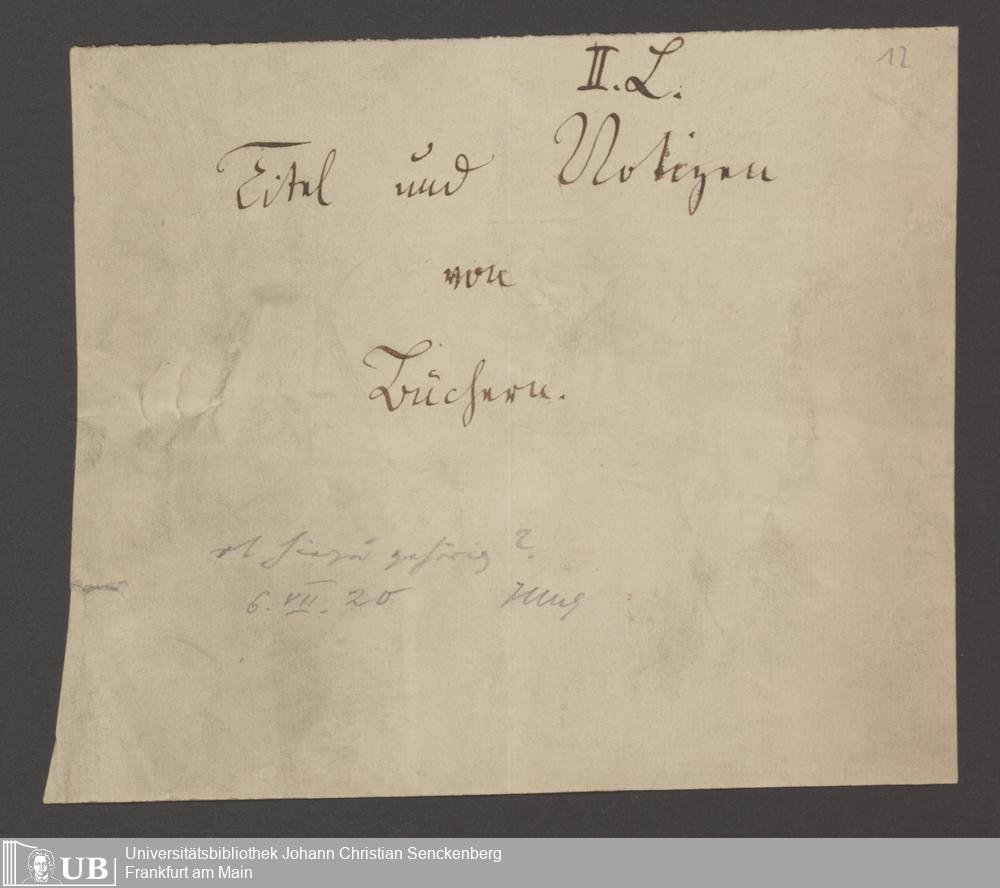 II. L.
12
Titel und Notizen
von
Büchern.
ob hiezu gehörig?
6. VII. 20
UB
Universitätsbibliothek Johann Christian Senckenberg
Frankfurt am Main